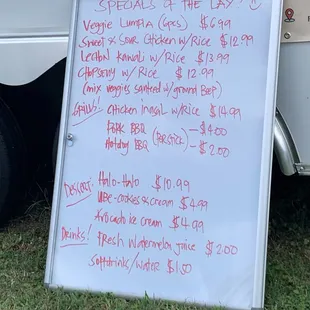 SPECIALS OF THE DAY!
Veggie Lumpia (6pcs) $6.99
Sweet & Sour Chicken w/Rice $12.99
Lechon Kawali w/Rice $13.99
Chopsuey w/Rice $12.99
(mix veggies sauteed w/ground Beef)
GRILL! Chicken Inasal w/Rice $14.99
Pork BBQ (PER STICK) - $4.00
Hotdog BBQ - $2.00
Dessert: Halo-Halo $10.99
Ube-cookies & cream $4.99
Avocado ice cream $4.99
Drinks! Fresh Watermelon Juice $2.00
Softdrinks/Water $1.50